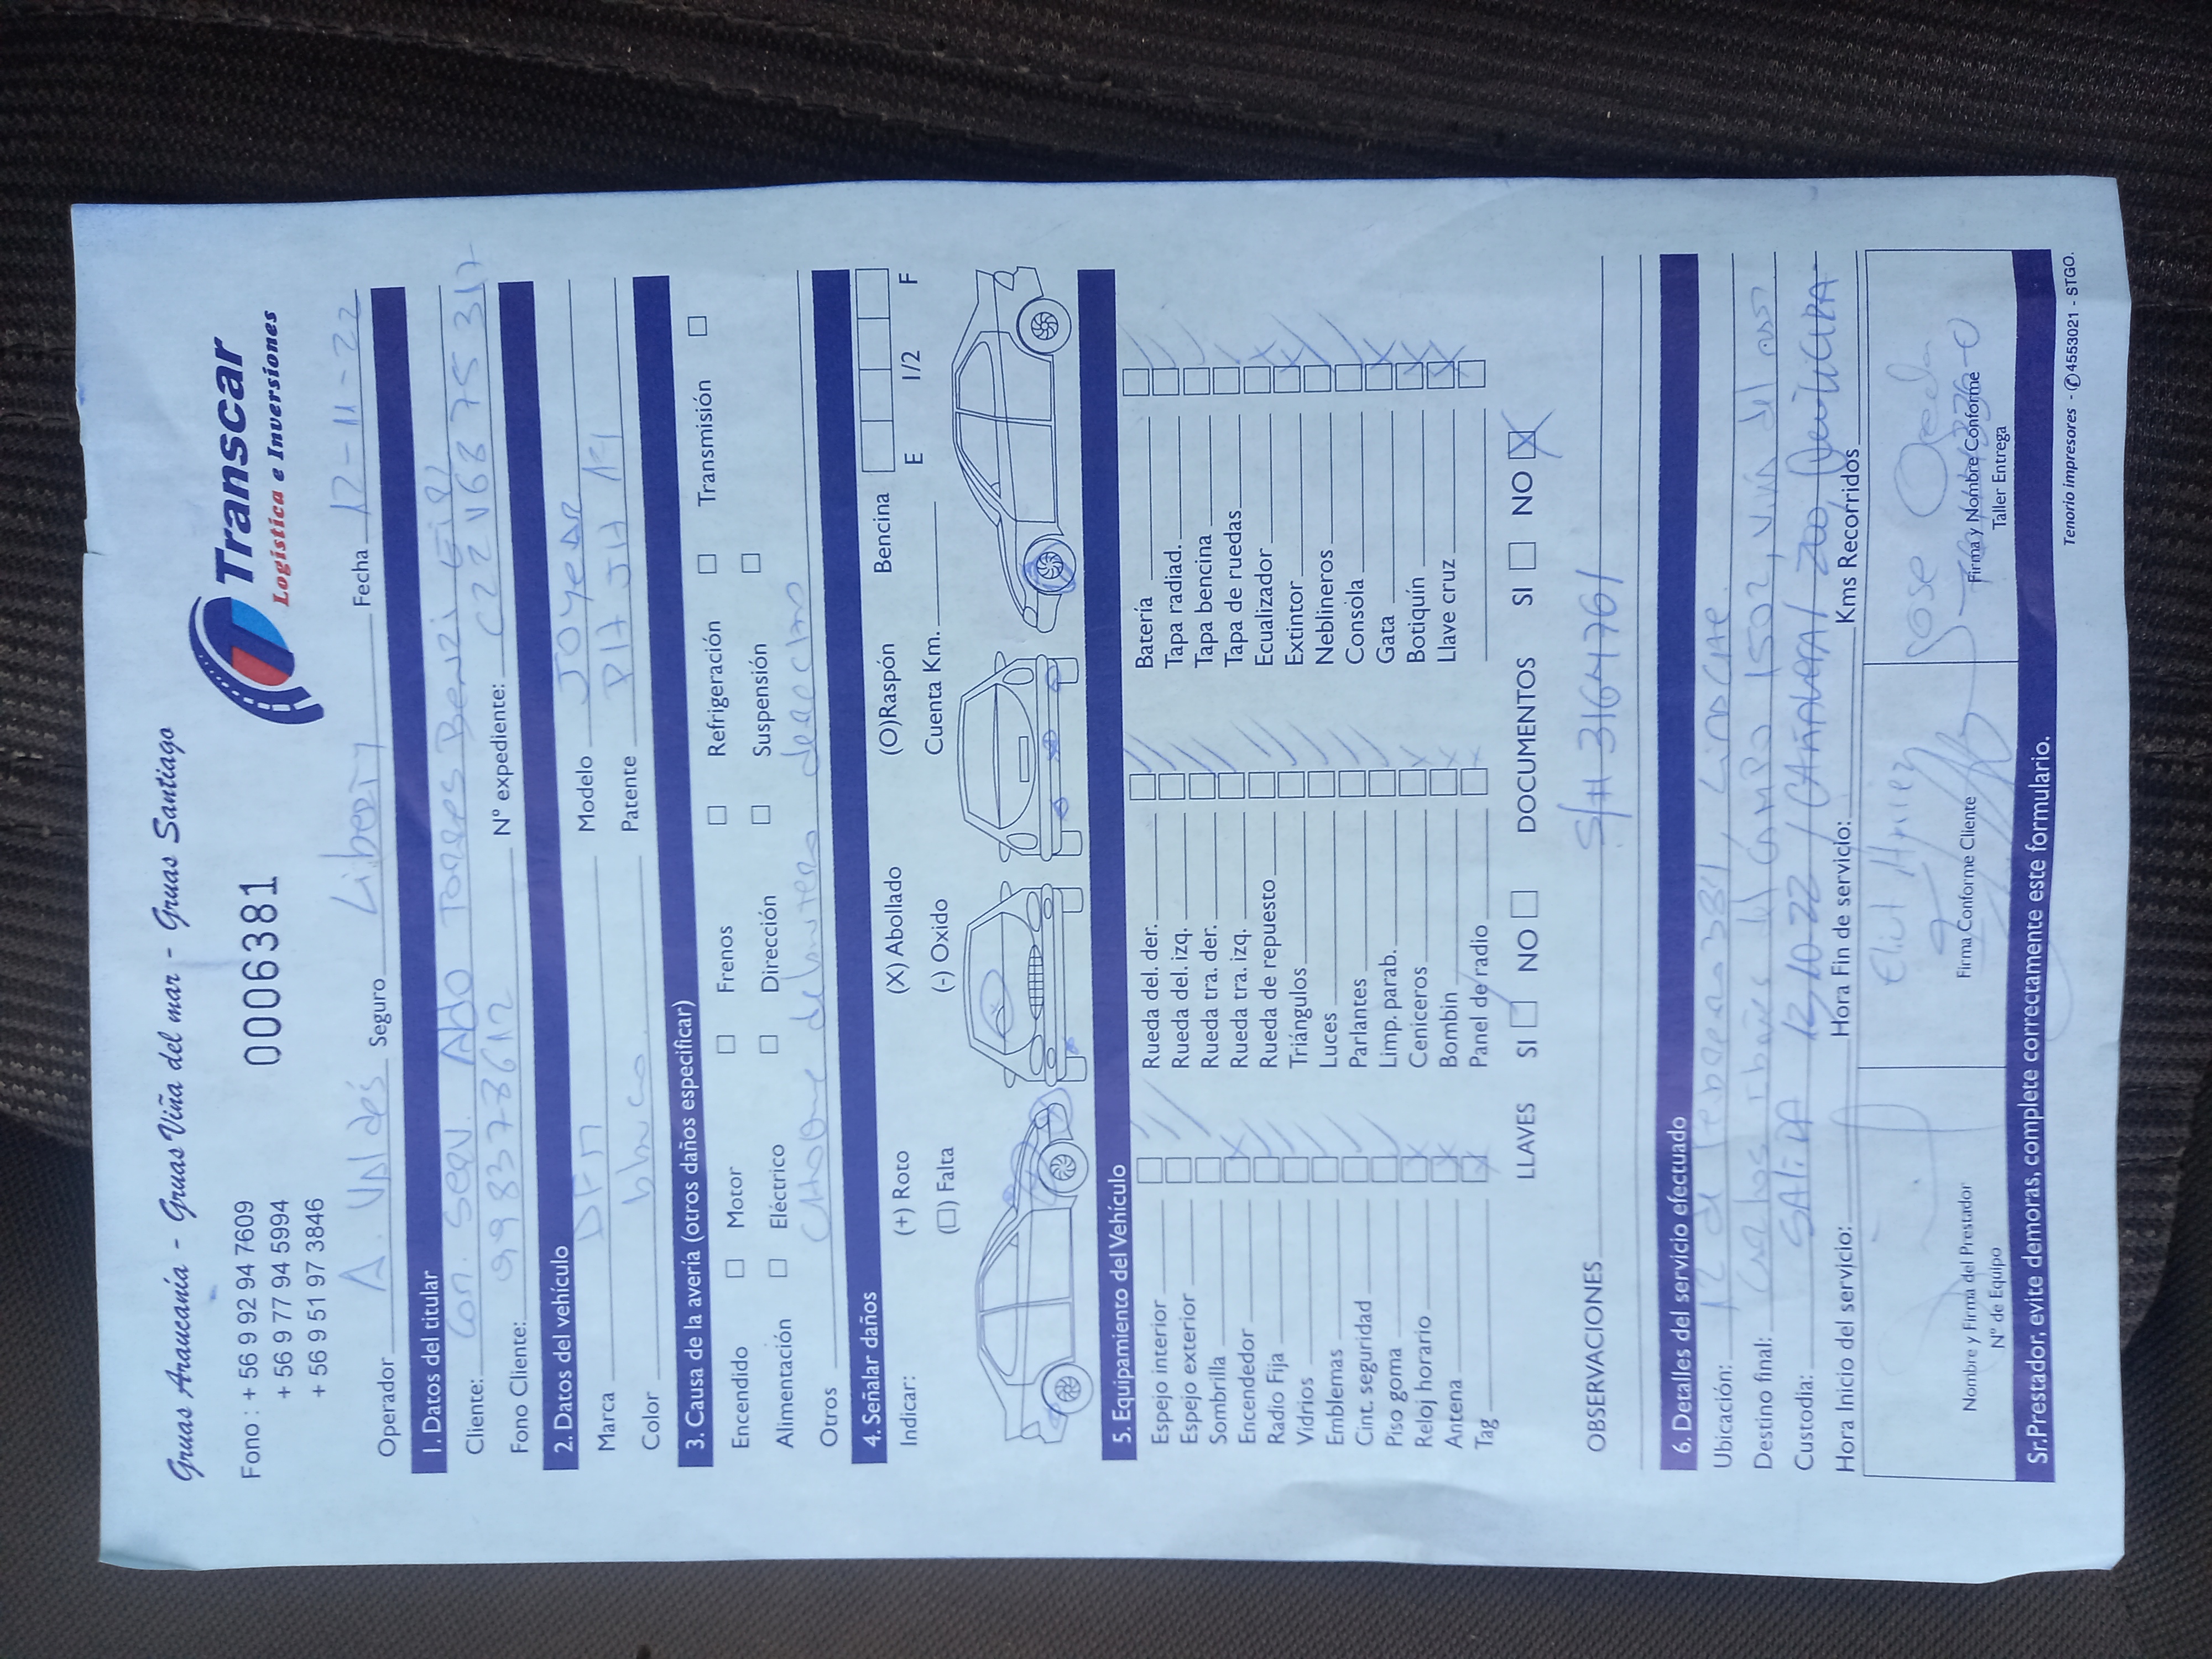 Gruas Araucanía - Gruas Viña del mar - Gruas Santiago
Fono : + 56 9 92 94 7609
+ 56 9 77 94 5994
+ 56 9 51 97 3846
0006381
Transcar
Logística e Inversiones
Operador A. Valdés Seguro Liberty Fecha 12-11-22
1. Datos del titular
Cliente: Con. Serv. Ado Torres Benzi
Fono Cliente: 9983778612 Nº expediente:
2. Datos del vehículo
Marca DFM Modelo JOyeAR
Color blanco Patente
3. Causa de la avería (otros daños especificar)
Encendido Motor Frenos Refrigeración Transmisión
Alimentación Eléctrico Dirección Suspensión
Otros Choque delantero derecho
4. Señalar daños
Indicar: (+) Roto (X) Abollado (O)Raspón Bencina E 1/2 F
(□) Falta (-) Oxido Cuenta Km.
5. Equipamiento del Vehículo
Espejo interior Rueda del. der. Batería
Espejo exterior Rueda del. izq. Tapa radiad.
Sombrilla Rueda tra. der. Tapa bencina
Encendedor Rueda tra. izq. Tapa de ruedas
Radio Fija Rueda de repuesto Ecualizador
Vidrios Triángulos Extintor
Emblemas Luces Neblineros
Cint. seguridad Parlantes Consola
Piso goma Limp. parab. Gata
Reloj horario Ceniceros Botiquín
Antena Bombin Llave cruz
Tag Panel de radio
LLAVES SI NO DOCUMENTOS SI NO
OBSERVACIONES S/H 3164761
6. Detalles del servicio efectuado
Ubicación: 12 de Febrero 381, Linderos
Destino final: Carlos Ibañez del Campo 1502, Viña del
Custodia: SALIDA 12-10-22 / CAÑAVERAL 200, Quilicura
Hora Inicio del servicio: Hora Fin de servicio: Kms Recorridos
Nombre y Firma del Prestador
Nº de Equipo
Firma Conforme Cliente
Jose Ojeda
Firma y Nombre Conforme
Taller Entrega
Sr.Prestador, evite demoras, complete correctamente este formulario.
Tenorio impresores - ✆4553021 - STGO.